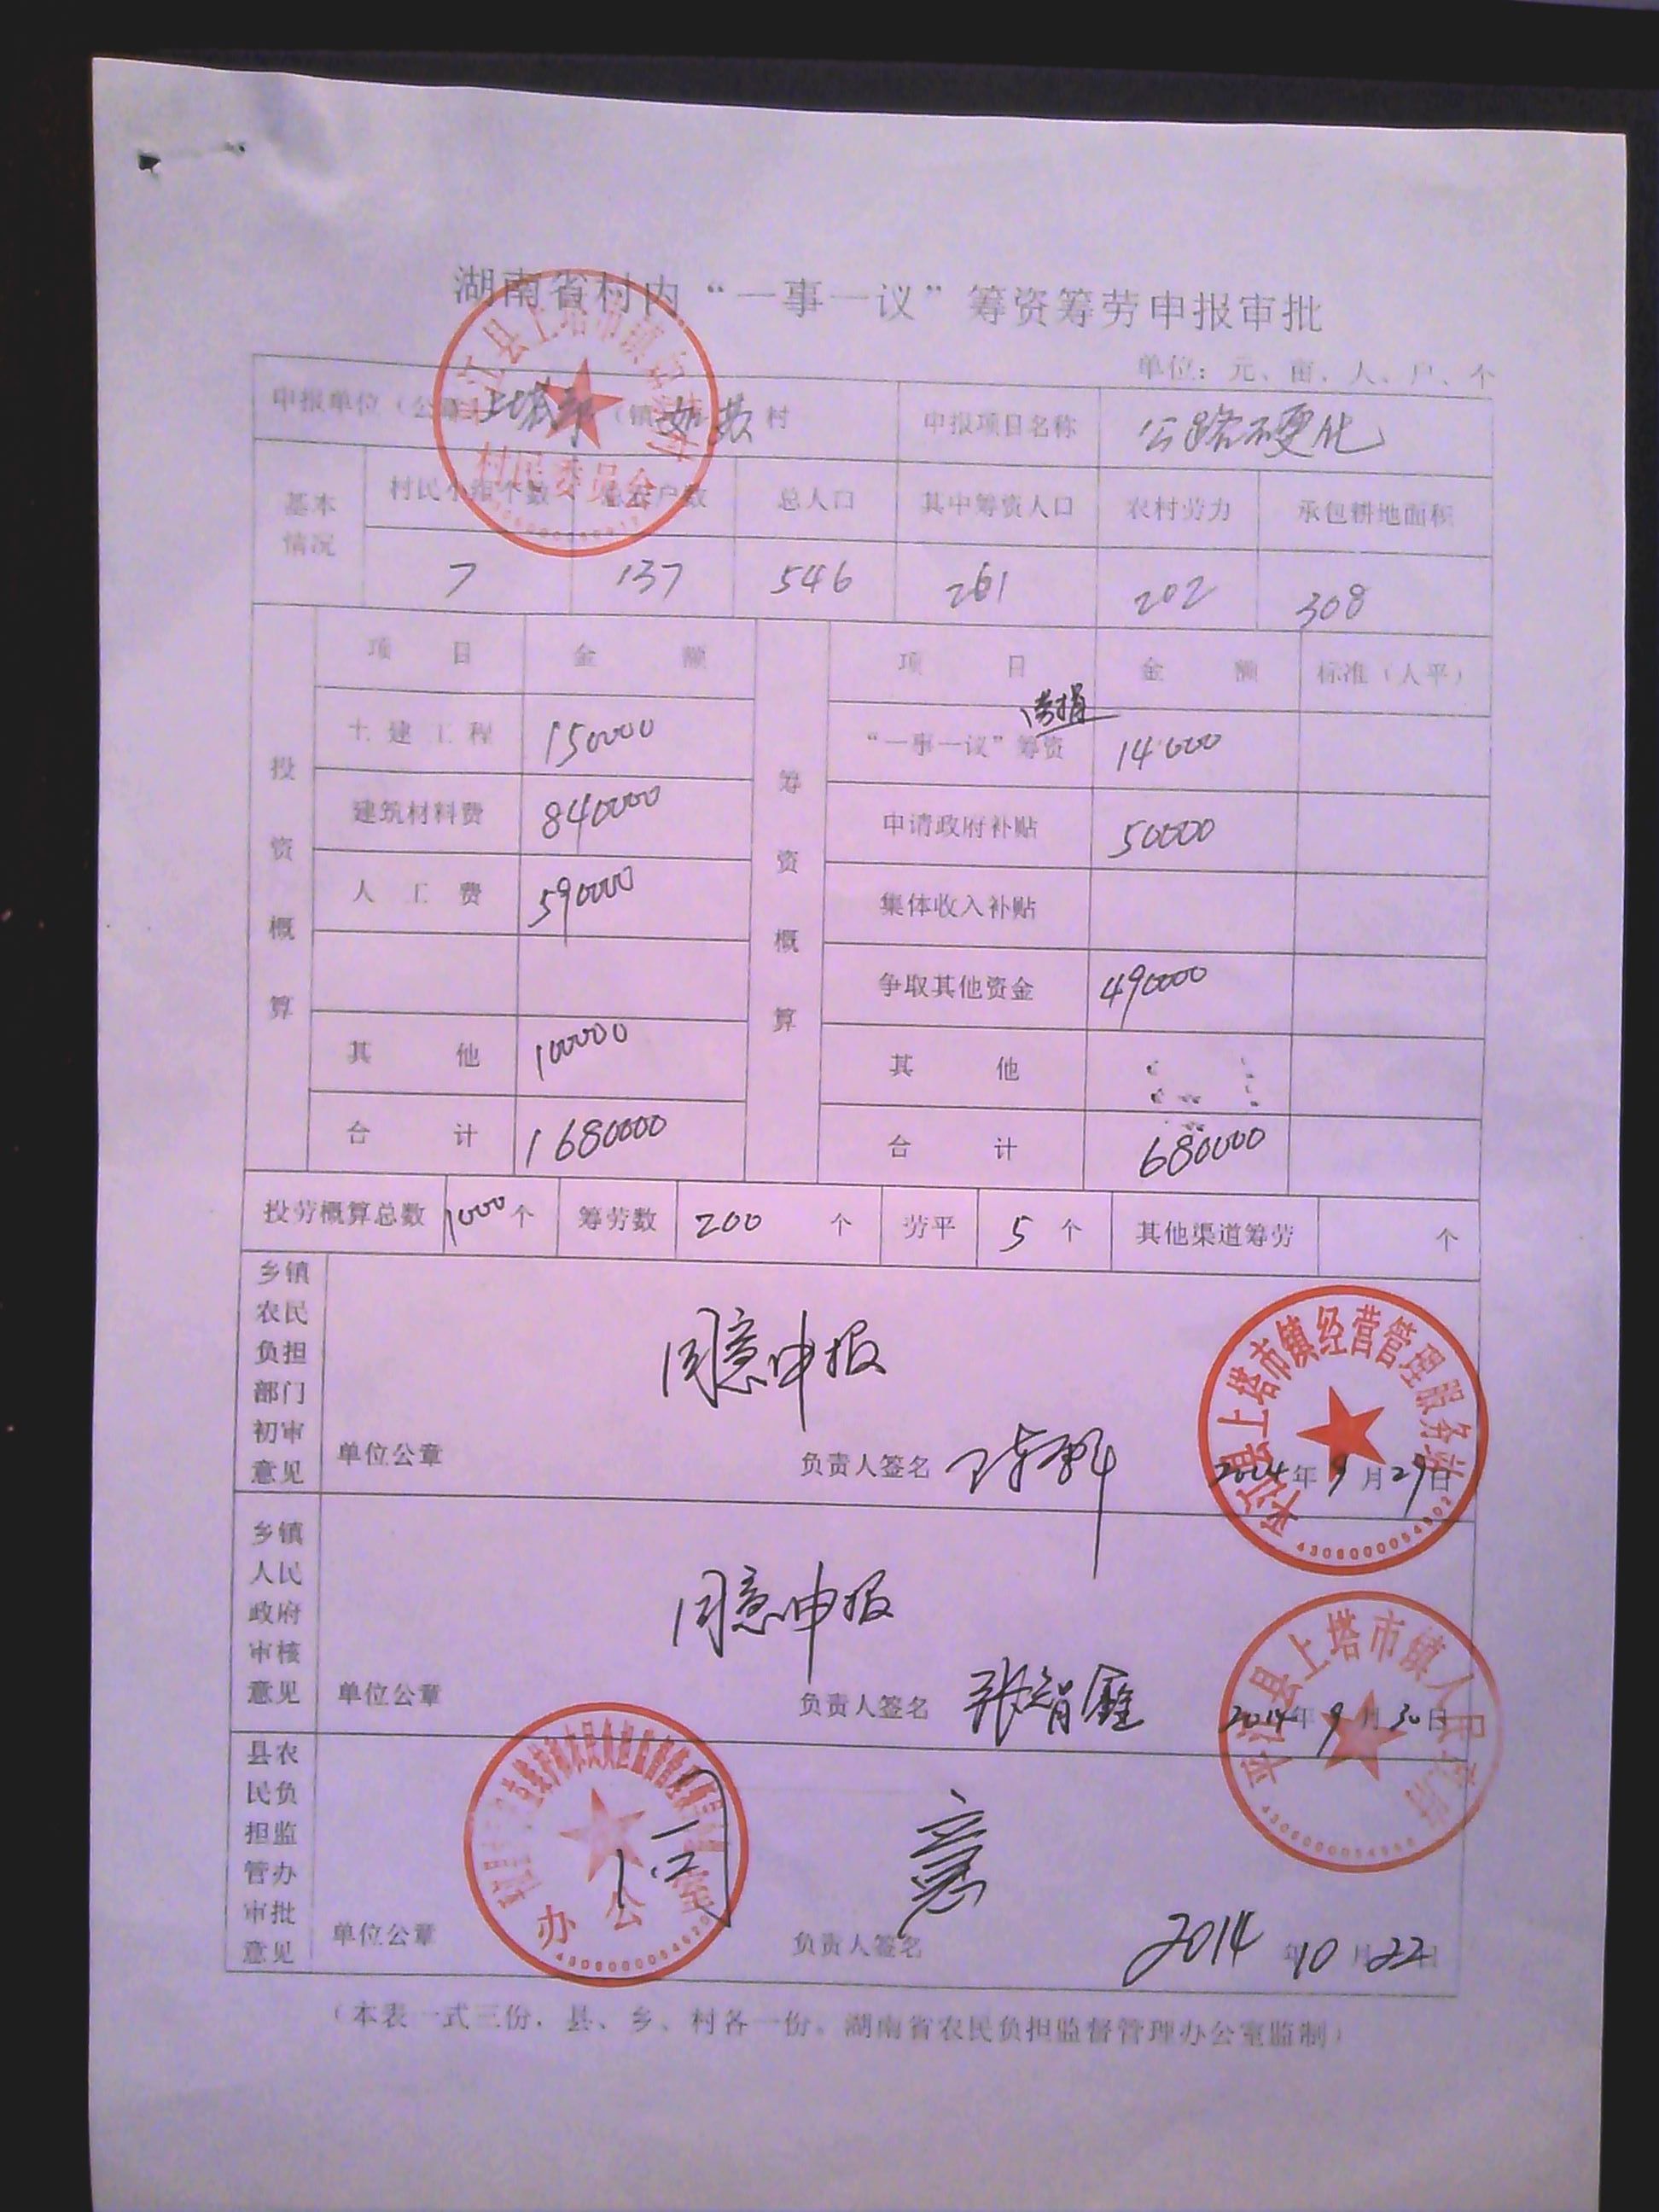 湖南省村内“一事一议”筹资筹劳申报审批
单位：元、亩、人、户、个
申报单位（公章） 上塔市（镇） 村 申报项目名称 公路硬化
基本情况 村民小组个数 总农户数 总人口 其中筹资人口 农村劳力 承包耕地面积
7 137 546 261 202 308
投资概算 筹资概算
项目 金额 项目 金额 标准（人平）
土建工程 150000 “一事一议”筹资 14000
建筑材料费 840000 申请政府补贴 50000
人工费 590000 集体收入补贴
争取其他资金 490000
其他 100000 其他
合计 1680000 合计 680000
投劳概算总数 1000个 筹劳数 200 个 劳平 5 个 其他渠道筹劳 个
乡镇农民负担部门初审意见
同意申报
单位公章 负责人签名 2014年9月29日
平江县上塔市镇经营管理服务站
乡镇人民政府审核意见
同意申报
单位公章 负责人签名 张智鑫 2014年9月30日
平江县上塔市镇人民政府
县农民负担监管办审批意见
同意
办公室
单位公章 负责人签名 2014年10月22日
（本表一式三份，县、乡、村各一份。湖南省农民负担监督管理办公室监制）
江县上塔市镇
村民委员会